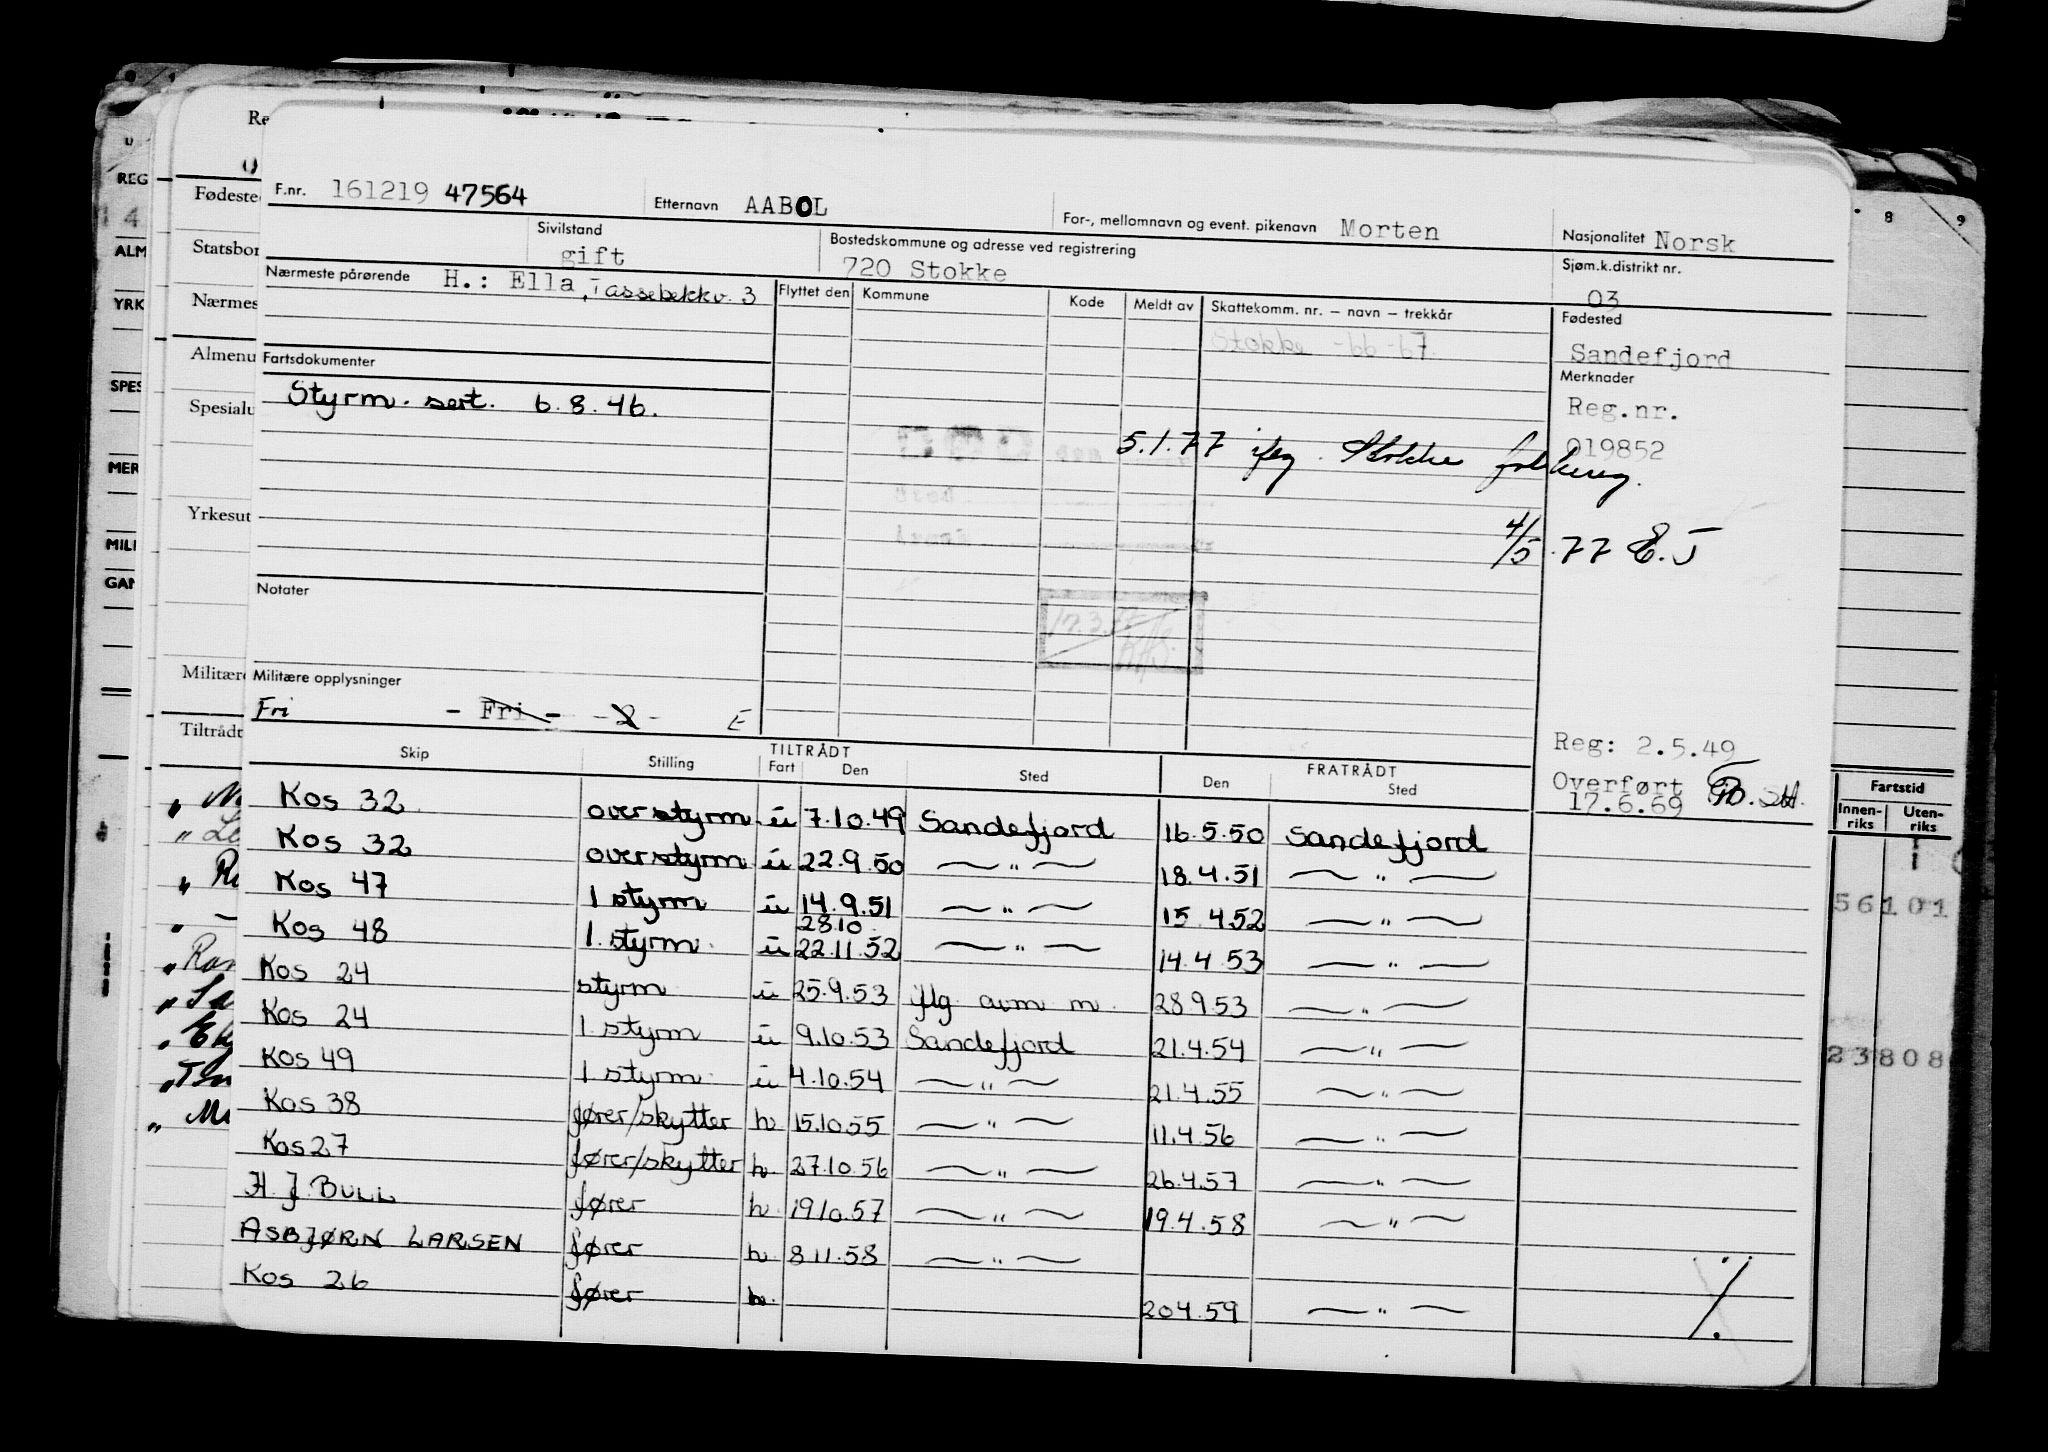 F.nr. 161219 47564 Etternavn AABOL For-, mellomnavn og event. pikenavn Morten Nasjonalitet Norsk
Sivilstand gift Bostedskommune og adresse ved registrering 720 Stokke Sjøm.k.distrikt nr. 03
Nærmeste pårørende H.: Ella, Tassebekkv. 3 Flyttet den Kommune Kode Meldt av Skattekomm. nr. – navn – trekkår Fødested
Stokke -66-67 Sandefjord
Fartsdokumenter Merknader
Styrm. sert. 6.8.46. Reg.nr.
019852
5.1.77 iflg. Stokke folkereg.
4/5.77 E.J
Notater
17.3.77
Militære opplysninger
Fri - Fri - - 2 - E
Reg: 2.5.49
Overført
17.6.69
Skip Stilling TILTRÅDT Fart Den Sted FRATRÅDT Den Sted
Kos 32 overstyrm. u 7.10.49 Sandefjord 16.5.50 Sandefjord
Kos 32 overstyrm u 22.9.50 — " — 18.4.51 — " —
Kos 47 1 styrm u 14.9.51 — " — 15.4.52 — " —
28.10
Kos 48 1. styrm. u 22.11.52 — " — 14.4.53 — " —
Kos 24 styrm u 25.9.53 iflg. avm m. 28.9.53 — " —
Kos 24 1 styrm u 9.10.53 Sandefjord 21.4.54 — " —
Kos 49 1 styrm u 4.10.54 — " — 21.4.55 — " —
Kos 38 fører/skytter h 15.10.55 — " — 11.4.56 — " —
Kos 27 fører/skytter h. 27.10.56 — " — 26.4.57 — " —
H. J. BULL fører h. 19.10.57 — " — 19.4.58 — " —
ASBJØRN LARSEN fører h 8.11.58 — " —
Kos 26 fører h. 20.4.59 — " —
Re
Fødested
Statsbor
Nærmes
Almenu
Spesialu
Yrkesut
Militære
Tiltrådt
REG
4
ALM
YRK
SPES
MER
MILI
GAN
8 9
Fartstid
Innenriks Utenriks
56101
23808